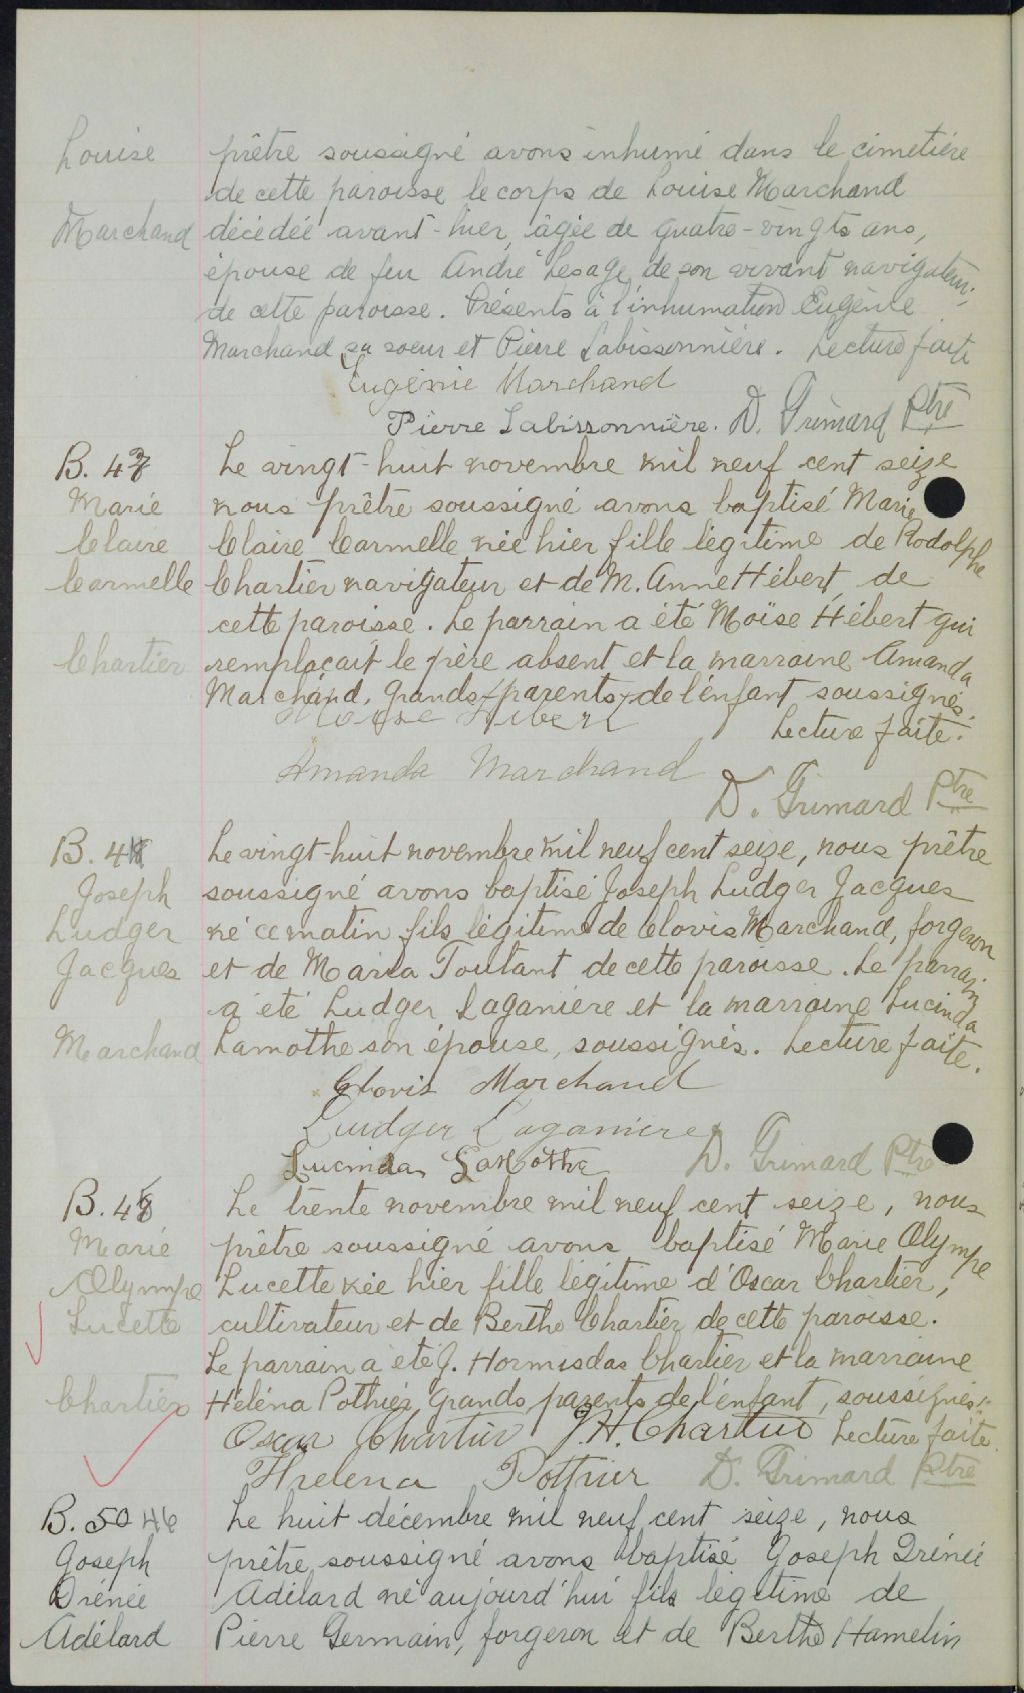 Louise
Marchand
prêtre soussigné avons inhumé dans le cimetière
de cette paroisse le corps de Louise Marchand
décédée avant-hier, âgée de quatre-vingts ans,
épouse de feu André Lesage, de son vivant navigateur,
de cette paroisse. Présents à l'inhumation Eugénie
Marchand sa soeur et Pierre Labissonnière. Lecture faite
Eugénie Marchand
Pierre Labissonnière. D. Grimard Ptre
B. 4
Marie
Claire
Carmelle
Chartier
Le vingt-huit novembre mil neuf cent seize
nous prêtre soussigné avons baptisé Marie
Claire Carmelle née hier fille légitime de Rodolphe
Chartier navigateur et de M. Anne Hébert, de
cette paroisse. Le parrain a été Moïse Hébert qui
remplaçait le père absent et la marraine Amanda
Marchand, grands-parents de l'enfant soussignés.
Lecture faite.
Moïse Hébert
Amanda Marchand
D. Grimard Ptre
B. 4
Joseph
Ludger
Jacques
Marchand
Le vingt-huit novembre mil neuf cent seize, nous prêtre
soussigné avons baptisé Joseph Ludger Jacques
né ce matin fils légitime de Clovis Marchand, forgeron
et de Maria Toutant de cette paroisse. Le parrain
a été Ludger Laganière et la marraine Lucinda
Lamothe son épouse, soussignés. Lecture faite.
Clovis Marchand
Ludger Laganiere
Lucinda Lamothe D. Grimard Ptre
B. 4
Marie
Olympe
Lucette
Chartier
Le trente novembre mil neuf cent seize, nous
prêtre soussigné avons baptisé Marie Olympe
Lucette née hier fille légitime d'Oscar Chartier,
cultivateur et de Berthe Chartier de cette paroisse.
Le parrain a été J. Hormisdas Chartier et la marraine
Héléna Pothier, grands parents de l'enfant, soussignés.
Oscar Chartier J.H. Chartier Lecture faite.
Helena Pothier D. Grimard Ptre
B. 50 46
Joseph
Irénée
Adélard
Le huit décembre mil neuf cent seize, nous
prêtre soussigné avons baptisé Joseph Irénée
Adélard né aujourd'hui fils légitime de
Pierre Germain, forgeron et de Berthe Hamelin